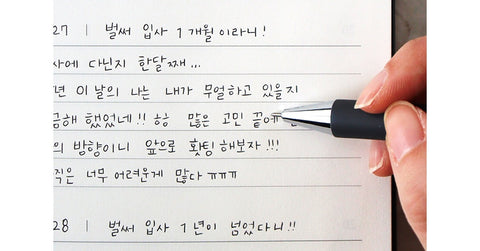 27 | 벌써 입사 1개월이라니!
사에 다닌지 한달째...
년 이날의 나는 내가 무얼하고 있을지
금해 했었네!! 하하 많은 고민 끝에
의 방향이니 앞으로 홧팅해보자!!!
직은 너무 어려운게 많다 ㅠㅠㅠ
28 | 벌써 입사 1년이 넘었다니!!